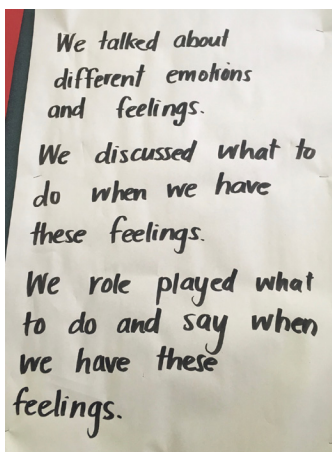 We talked about
different emotions
and feelings.
We discussed what to
do when we have
these feelings.
We role played what
to do and say when
we have these
feelings.